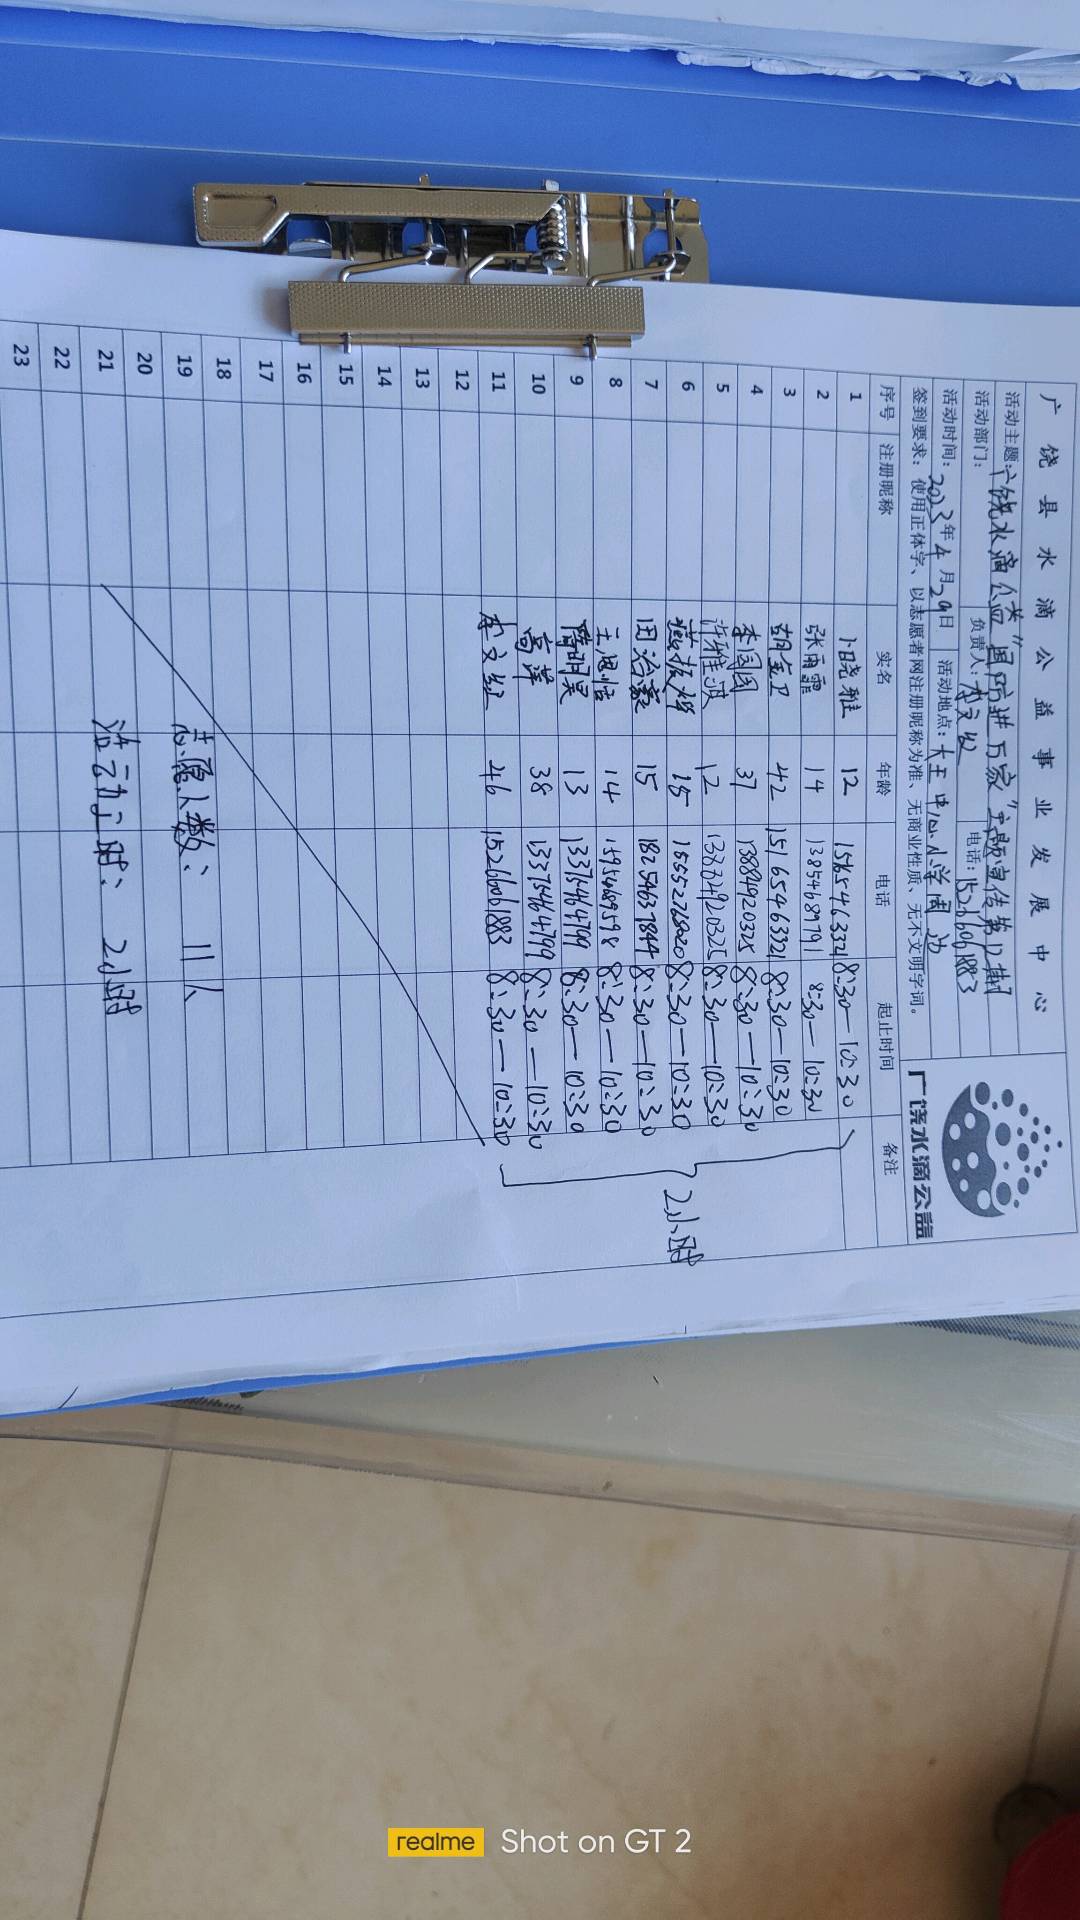 广饶县水滴公益事业发展中心
活动主题:广饶水滴公益"国防进万家"主题宣传第12期
活动部门: 负责人: 电话:15266061883
活动时间:2023年4月29日 活动地点:大王中心小学周边
签到要求:使用正体字、以志愿者网注册昵称为准、无商业性质、无不文明字词。
广饶水滴公益
序号 注册昵称 实名 年龄 电话 起止时间 备注
1 晓雅 12 15165463321 8:30—10:30
2 张雨霏 14 13854689791 8:30—10:30
3 胡金卫 42 15165463321 8:30—10:30
4 李园园 37 13884920325 8:30—10:30
5 许雅淇 12 13884920325 8:30—10:30
6 15 15552768020 8:30—10:30
7 田治豪 15 18254637844 8:30—10:30
8 王思恬 14 15954689598 8:30—10:30
9 隋明昊 13 13375464799 8:30—10:30
10 高萍 38 13375464799 8:30—10:30
11 46 15266061883 8:30—10:30
2小时
12
13
14
15
16
17
18
19 志愿人数: 11人
20
21 活动时: 2小时
22
23
realme Shot on GT 2